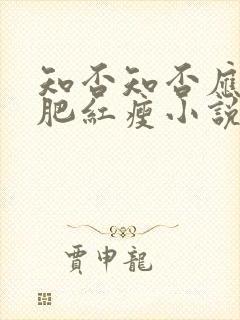 知否知否應
肥紅瘦小說
賈申龍